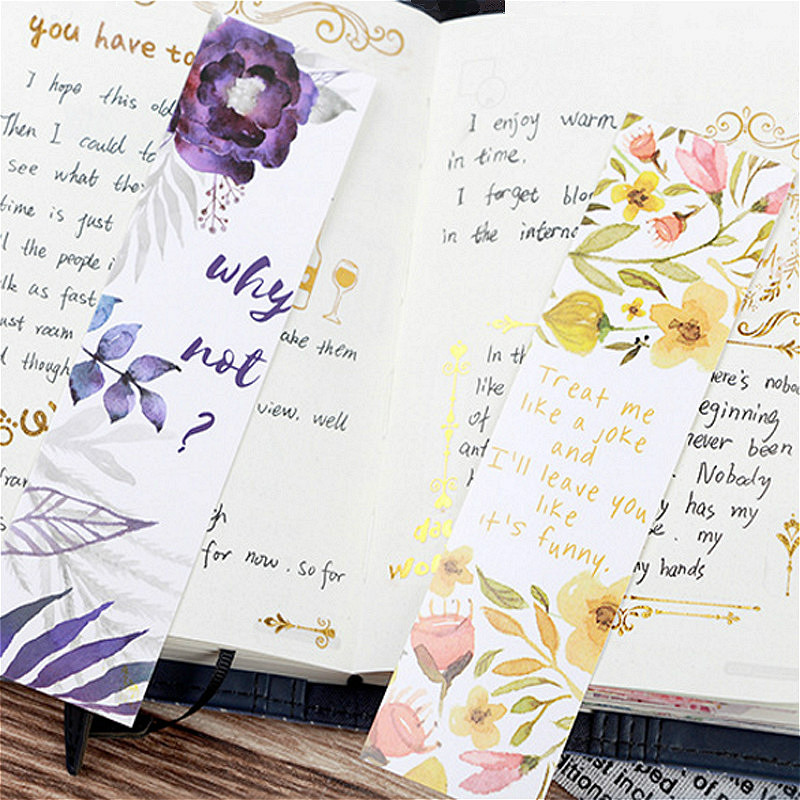 you have to
I hope this old
Then I could to
see what the
time is just
the people i
lk as fast
ust room
though
why
not
?
ake them
view. well
for now. so for
I enjoy warm
in time.
I forget blo
in the interno
In th
like
of
Treat me
like a joke
and
I'll leave you
like
it's funny.
ere's nobo
eginning
never been
Nobody
has my
my
my hands